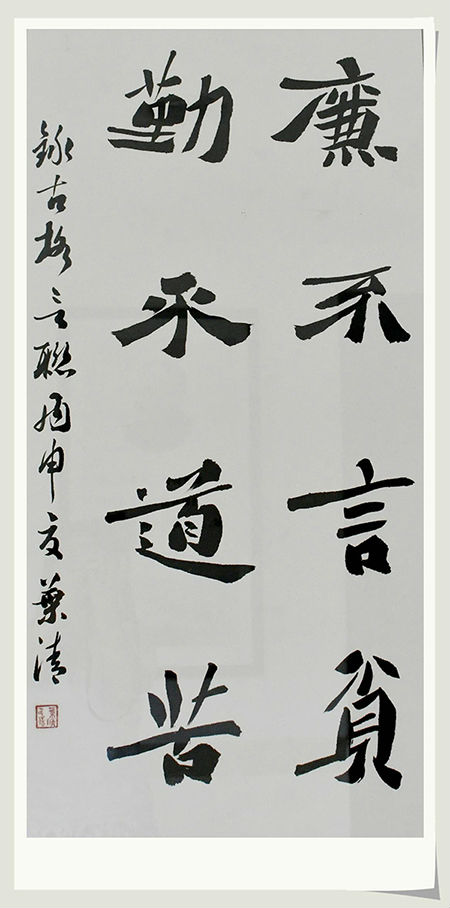 廉不言貧
勤不道苦
錄古格言聯丙申夏葉清